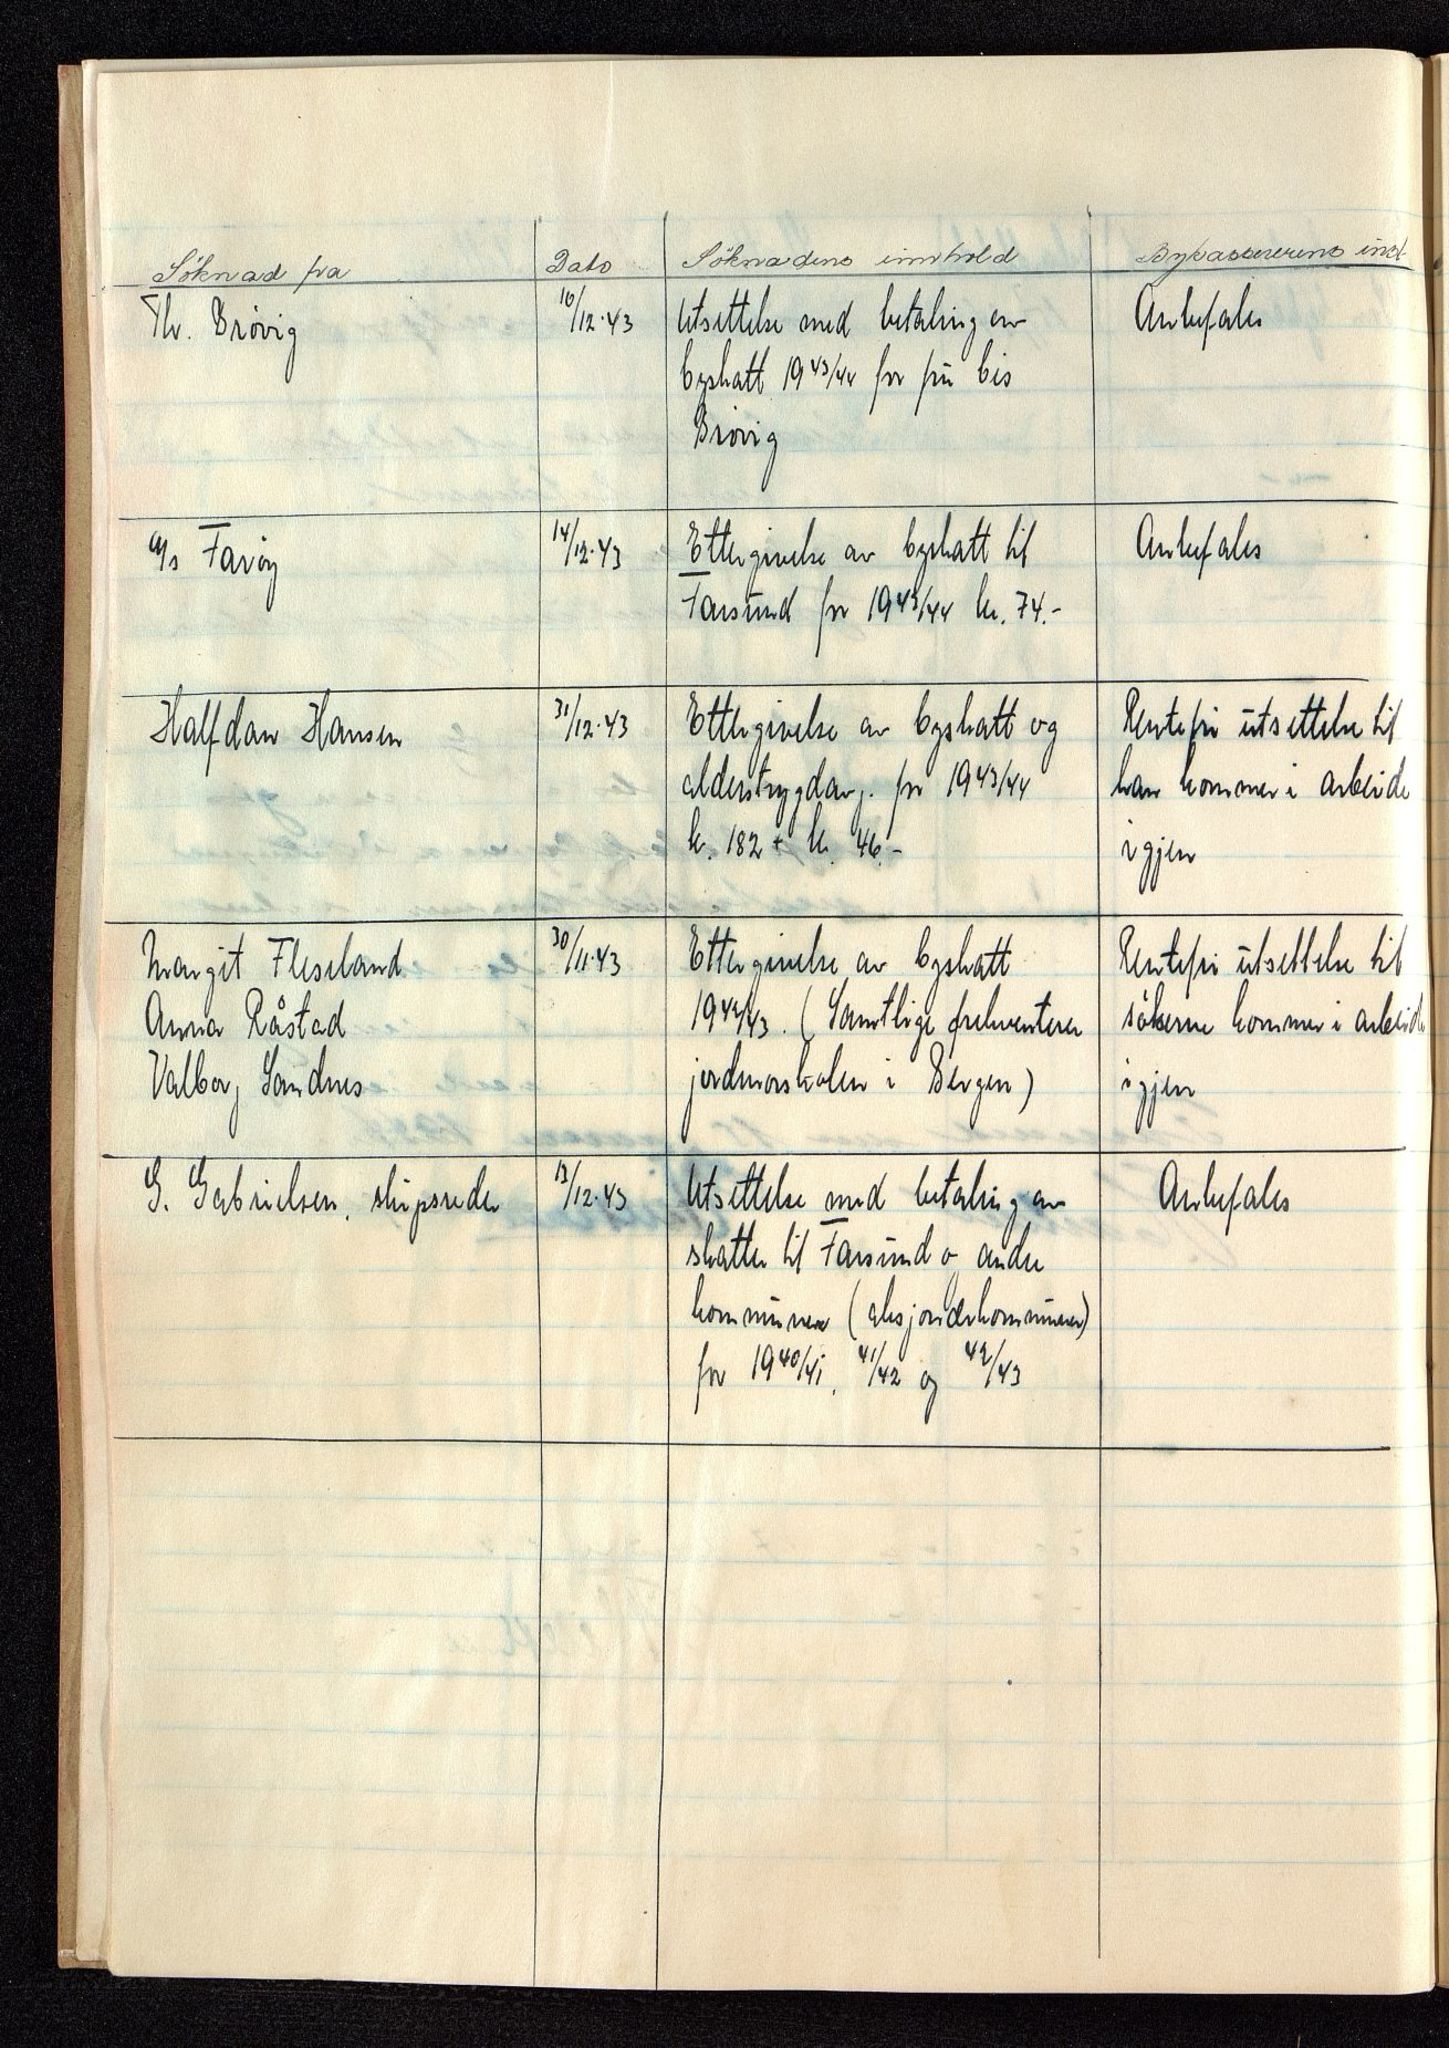 Söknad fra	Dato	Söknadens innhold	Bykassererens inst.
Th. Brövig	10/12-43	Utsettelse med betaling av	Anbefales
byskatt 1943/44 for fru
Brövig
A/s Faröy	14/12-43	Ettergivelse av byskatt til	Anbefales
Farsund for 1943/44 kr. 74.-
Halfdan Hansen	31/12-43	Ettergivelse av byskatt og	Rentefri utsettelse til
alderstrygdavg. for 1943/44	han kommer i arbeide
kr. 182 + kr. 46.-	igjen
Margit Flesland	30/11-43	Ettergivelse av byskatt	Rentefri utsettelse til
Anna Råstad	1942/43. (Samtlige frekventerer	sökerne kommer i arbeide
Valborg Sandnes	jordmorskolen i Bergen)	igjen
G. Gabrielsen, skipsreder	13/12-43	Utsettelse med betaling av	Anbefales
skatter til Farsund og andre
kommuner (aksjonærkommuner)
for 1940/41, 41/42 og 42/43